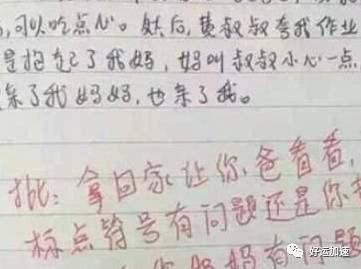 ,可以吃点心。然后,黄叔叔夸我作业
是抱起了我妈,妈叫叔叔小心一点
亲了我妈妈,也亲了我。
批:拿回家让你爸看看,
标点符号有问题还是你
妈妈有问题
好运加速